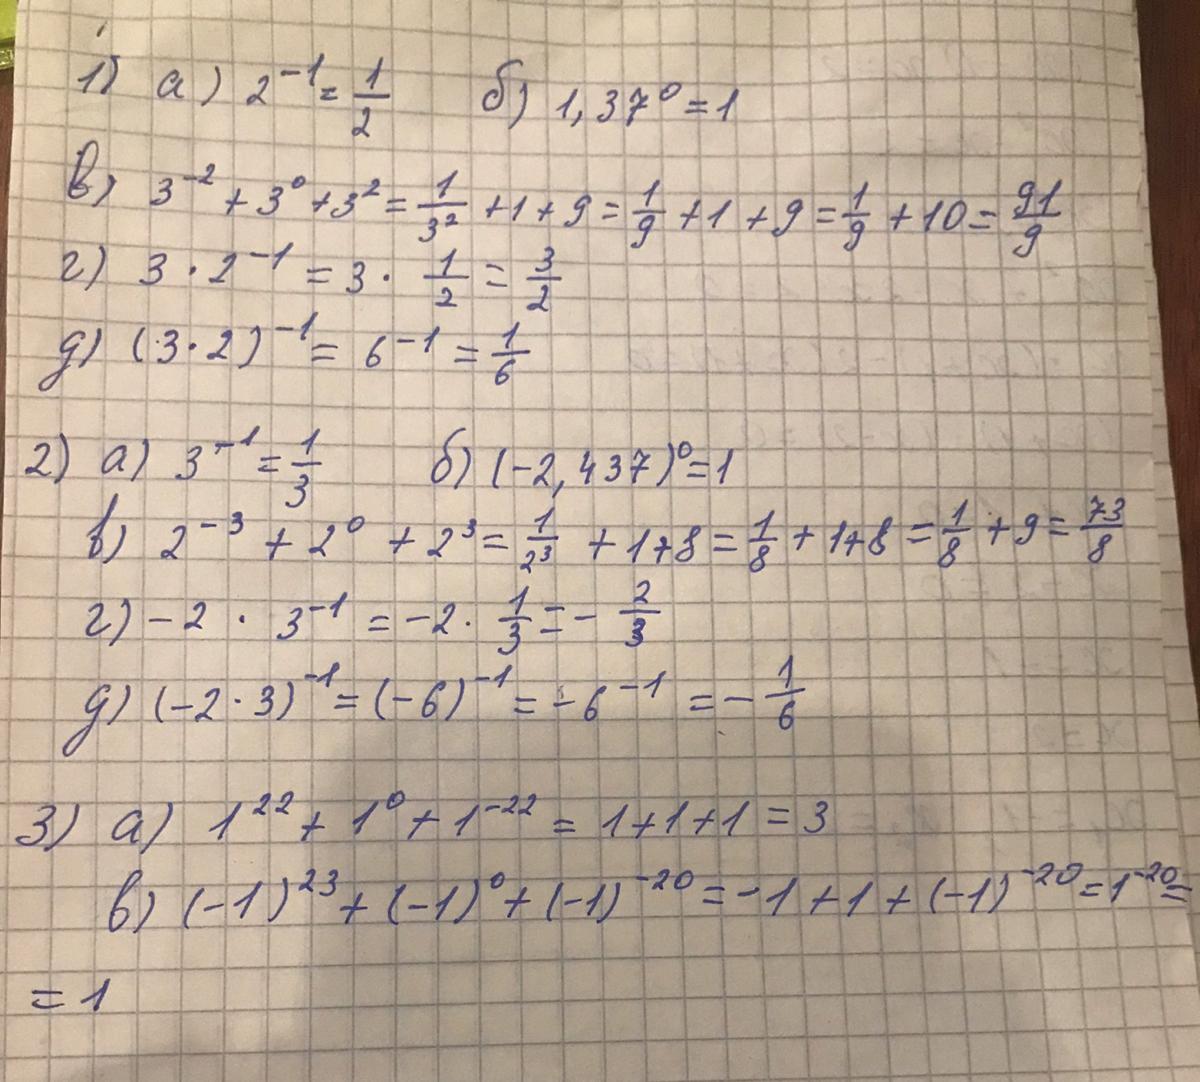 1) а) 2⁻¹ = 1/2 б) 1,37⁰ = 1
в) 3⁻² + 3⁰ + 3² = 1/3² + 1 + 9 = 1/9 + 1 + 9 = 1/9 + 10 = 91/9
г) 3 · 2⁻¹ = 3 · 1/2 = 3/2
д) (3 · 2)⁻¹ = 6⁻¹ = 1/6
2) а) 3⁻¹ = 1/3 б) (-2,437)⁰ = 1
в) 2⁻³ + 2⁰ + 2³ = 1/2³ + 1 + 8 = 1/8 + 1 + 8 = 1/8 + 9 = 73/8
г) -2 · 3⁻¹ = -2 · 1/3 = - 2/3
д) (-2 · 3)⁻¹ = (-6)⁻¹ = -6⁻¹ = - 1/6
3) а) 1²² + 1⁰ + 1⁻²² = 1 + 1 + 1 = 3
в) (-1)²³ + (-1)⁰ + (-1)⁻²⁰ = -1 + 1 + (-1)⁻²⁰ = 1⁻²⁰ =
= 1